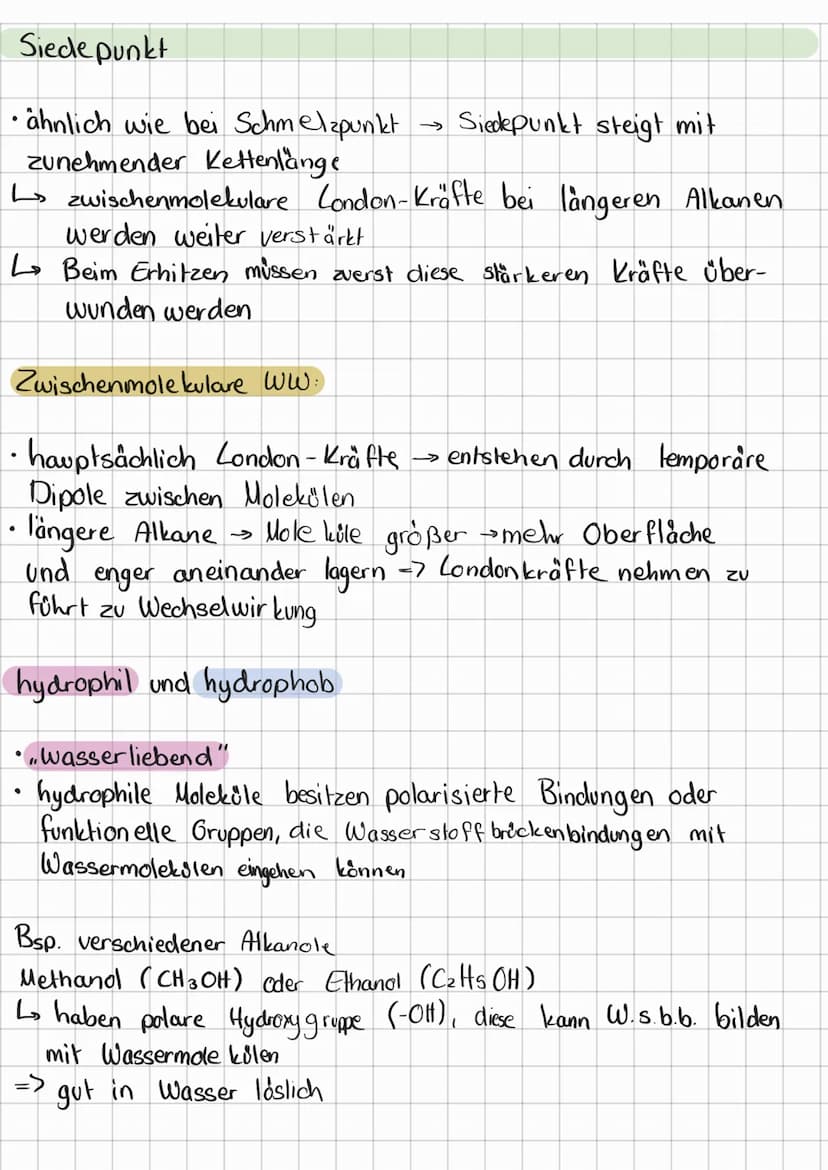 Siedepunkt
• ähnlich wie bei Schmelzpunkt → Siedepunkt steigt mit
zunehmender Kettenlänge
↳ zwischenmolekulare London-Kräfte bei längeren Alkanen
werden weiter verstärkt
↳ Beim Erhitzen müssen zuerst diese stärkeren Kräfte über-
wunden werden
Zwischenmolekulare WW:
• hauptsächlich London-Kräfte → entstehen durch temporäre
Dipole zwischen Molekülen
• längere Alkane → Moleküle größer → mehr Oberfläche
und enger aneinander lagern => Londonkräfte nehmen zu
führt zu Wechselwirkung
hydrophil und hydrophob
• „wasserliebend"
• hydrophile Moleküle besitzen polarisierte Bindungen oder
funktionelle Gruppen, die Wasserstoffbrückenbindungen mit
Wassermolekülen eingehen können
Bsp. verschiedener Alkanole
Methanol (CH3OH) oder Ethanol (C2H5OH)
↳ haben polare Hydroxygruppe (-OH), diese kann W.s.b.b. bilden
mit Wassermolekülen
=> gut in Wasser löslich